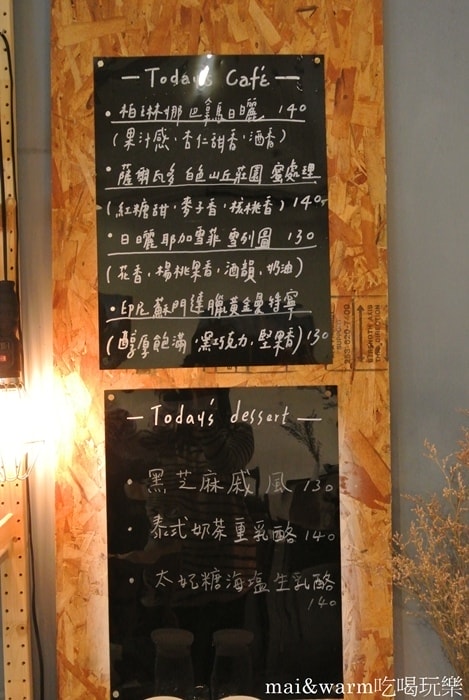 — Today's Café —
• 柏林娜 巴拿馬日曬 140
(果汁感, 杏仁甜香, 酒香)
• 薩爾瓦多 白色山丘莊園 蜜處理
(紅糖甜, 麥子香, 核桃香) 140
• 日曬 耶加雪菲 雪列圖 130
(花香, 楊桃果香, 酒韻, 奶油)
• 印尼 蘇門達臘黃金曼特寧
(醇厚飽滿, 黑巧克力, 堅果香) 130
— Today's dessert —
• 黑芝麻戚風 130
• 泰式奶茶重乳酪 140
• 太妃糖海塩生乳酪
140
mai&warm吃喝玩樂